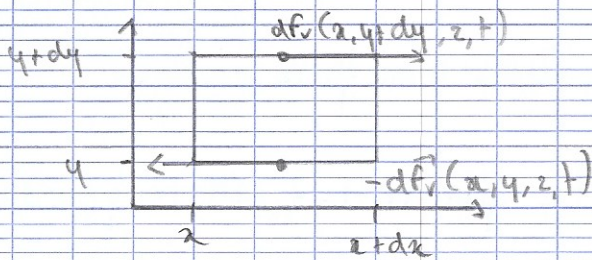 dfv(x, y+dy, z, t)
y+dy
y
-df⃗v(x, y, z, t)
x
x+dx